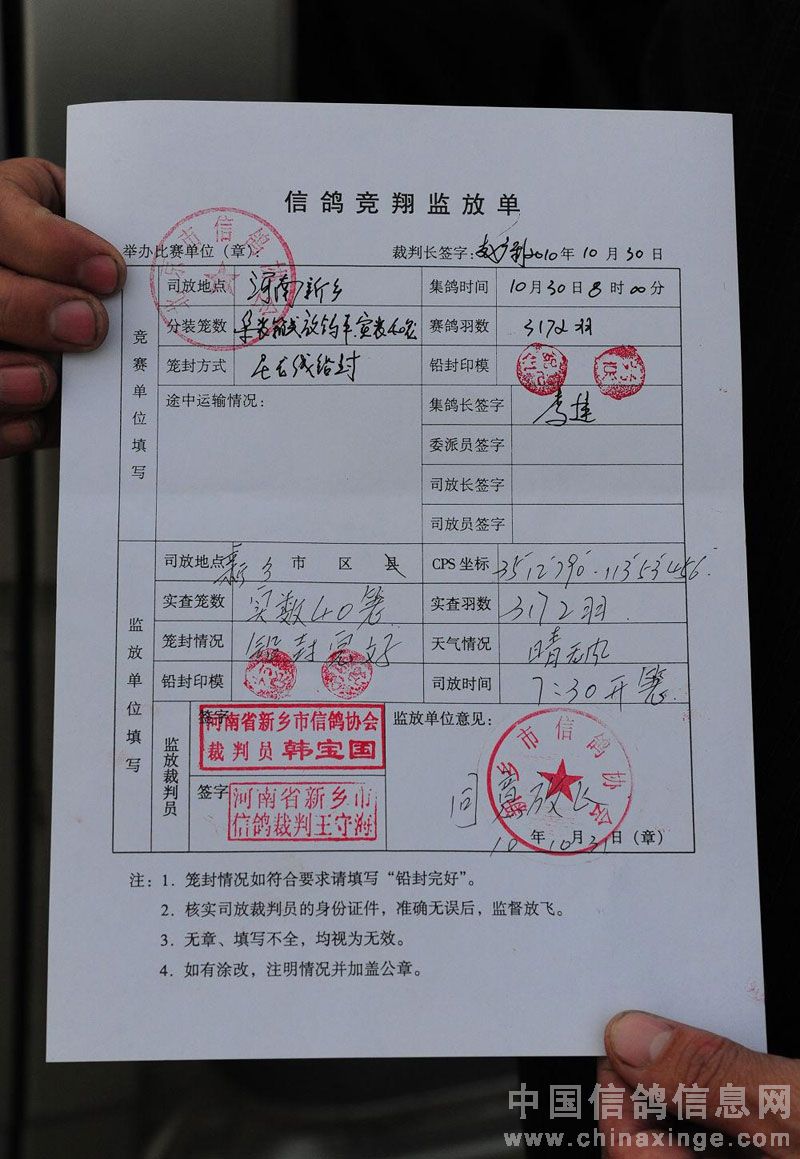 信鸽竞翔监放单
举办比赛单位（章）： 裁判长签字： 2010年10月30日
北京市信鸽协会
竞赛单位填写
司放地点 河南新乡 集鸽时间 10月30日8时00分
分装笼数 赛鸽羽数 3172羽
笼封方式 铅封印模
途中运输情况： 集鸽长签字
委派员签字
司放长签字
司放员签字
监放单位填写
司放地点 新乡市 区 县 CPS坐标 35°12′390 113°53′456
实查笼数 实数40笼 实查羽数 3172羽
笼封情况 铅封完好 天气情况 晴无风
铅封印模 司放时间 7:30开笼
监放裁判员
签字 河南省新乡市信鸽协会
裁判员 韩宝国
签字 河南省新乡市
信鸽裁判王守海
监放单位意见：
新乡市信鸽协会
同意放飞
10年10月31日（章）
注：1. 笼封情况如符合要求请填写“铅封完好”。
2. 核实司放裁判员的身份证件，准确无误后，监督放飞。
3. 无章、填写不全，均视为无效。
4. 如有涂改，注明情况并加盖公章。
中国信鸽信息网
www.chinaxinge.com